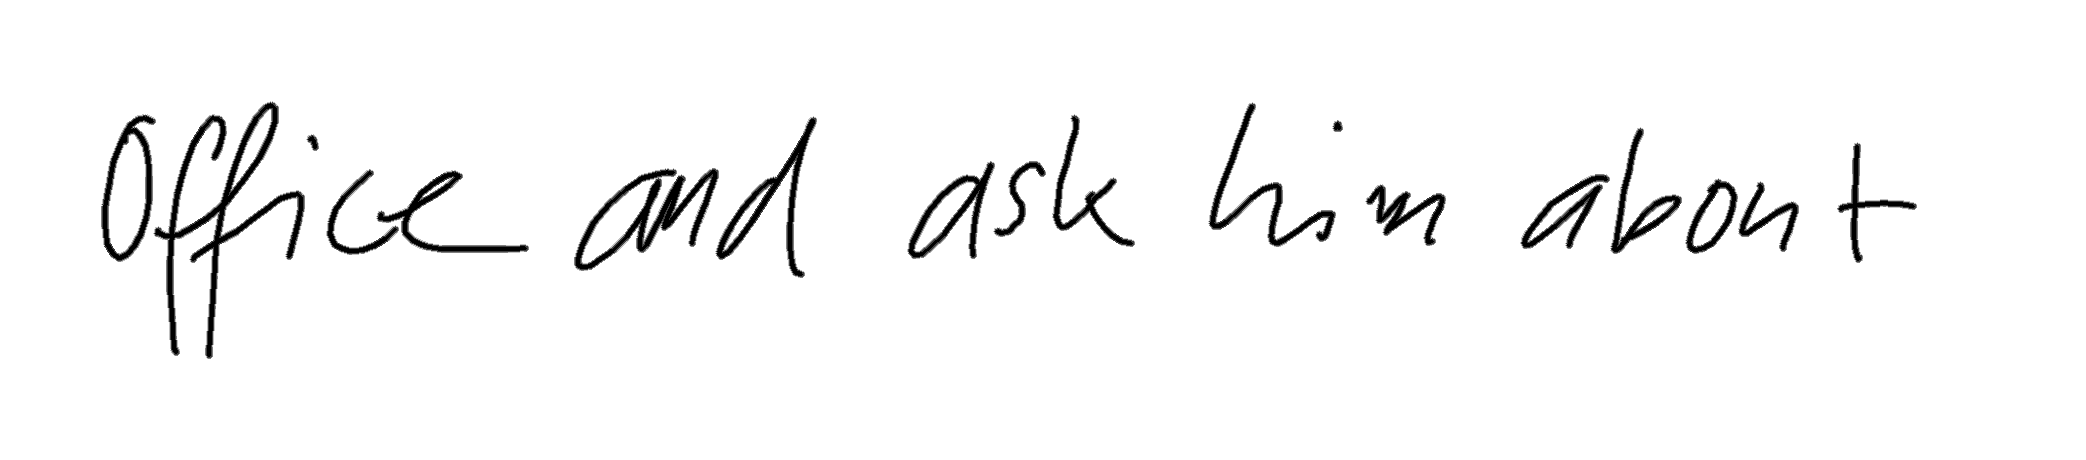 Office and ask him about